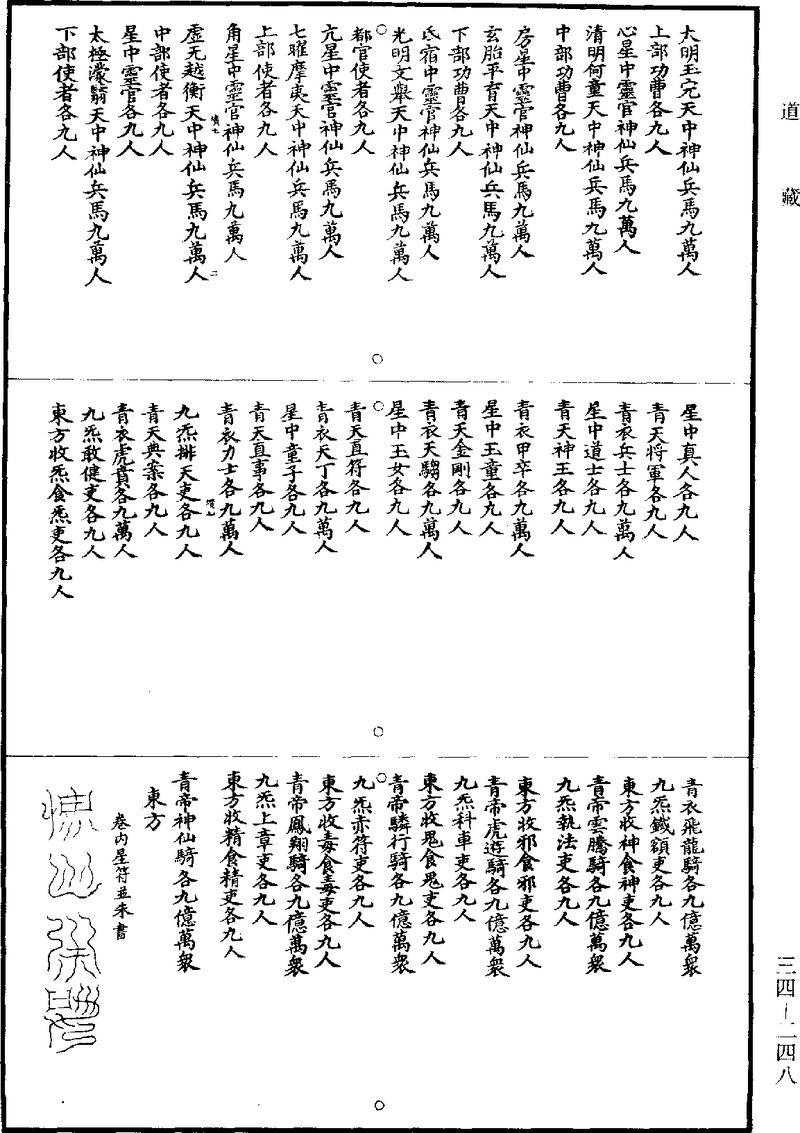 道藏
大明玉完天中神仙兵馬九萬人
上部功曹各九人
心星中靈官神仙兵馬九萬人
清明何童天中神仙兵馬九萬人
中部功曹各九人
房星中靈官神仙兵馬九萬人
玄胎平育天中神仙兵馬九萬人
下部功曹各九人
氐宿中靈官神仙兵馬九萬人
光明文舉天中神仙兵馬九萬人
都官使者各九人
亢星中靈官神仙兵馬九萬人
七曜摩夷天中神仙兵馬九萬人
上部使者各九人
角星中靈官神仙兵馬九萬人
虛无越衡天中神仙兵馬九萬人
二
中部使者各九人
星中靈官各九人
太極濛翳天中神仙兵馬九萬人
下部使者各九人
星中真人各九人
青天將軍各九人
青衣兵士各九萬人
星中道士各九人
青天神王各九人
青衣甲卒各九萬人
星中玉童各九人
青天金剛各九人
青衣天騶各九萬人
星中玉女各九人
青天直符各九人
青衣天丁各九萬人
星中童子各九人
青天直事各九人
青衣力士各九萬人
九炁排天吏各九人
青天典案各九人
青衣虎賁各九萬人
九炁敢健吏各九人
東方收炁食炁吏各九人
青衣飛龍騎各九億萬衆
九炁鐵額吏各九人
東方收神食神吏各九人
青帝雲騰騎各九億萬衆
九炁執法吏各九人
東方收邪食邪吏各九人
青帝虎遊騎各九億萬衆
九炁科車吏各九人
東方收鬼食鬼吏各九人
青帝驎行騎各九億萬衆
九炁赤符吏各九人
東方收毒食毒吏各九人
青帝鳳翔騎各九億萬衆
九炁上章吏各九人
東方收精食精吏各九人
青帝神仙騎各九億萬衆
東方
卷内星符並朱書
三四—二四八